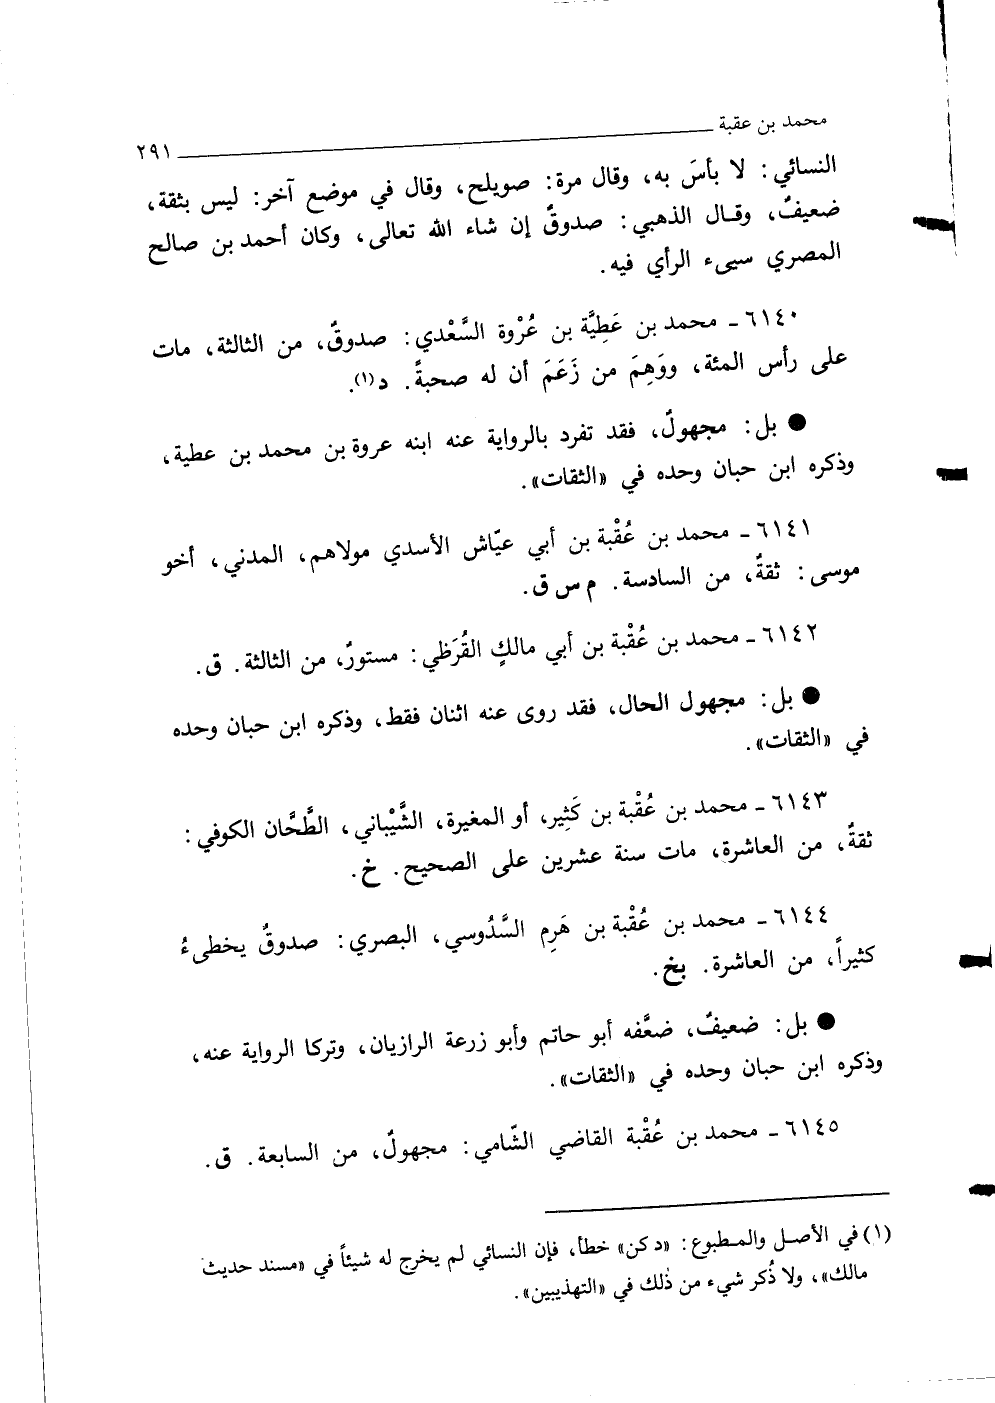 محمد بن عقبة ٢٩١
النسائي: لا بأسَ به، وقال مرة: صويلح، وقال في موضع آخر: ليس بثقة،
ضعيفٌ، وقال الذهبي: صدوقٌ إن شاء الله تعالى، وكان أحمد بن صالح
المصري سيىء الرأي فيه.
٦١٤٠ ـ محمد بن عَطِيَّة بن عُرْوة السَّعْدي: صدوقٌ، من الثالثة، مات
على رأس المئة، ووَهِمَ من زَعَمَ أن له صحبةً. د(١).
● بل: مجهولٌ، فقد تفرد بالرواية عنه ابنه عروة بن محمد بن عطية،
وذكره ابن حبان وحده في «الثقات».
٦١٤١ ـ محمد بن عُقْبة بن أبي عيّاش الأسدي مولاهم، المدني، أخو
موسى: ثقةٌ، من السادسة. م س ق.
٦١٤٢ ـ محمد بن عُقْبة بن أبي مالكٍ القُرَظي: مستورٌ، من الثالثة. ق.
● بل: مجهول الحال، فقد روى عنه اثنان فقط، وذكره ابن حبان وحده
في «الثقات».
٦١٤٣ ـ محمد بن عُقْبة بن كَثِير، أو المغيرة، الشَّيْباني، الطَّحَّان الكوفي:
ثقةٌ، من العاشرة، مات سنة عشرين على الصحيح. خ.
٦١٤٤ ـ محمد بن عُقْبة بن هَرِم السَّدُوسي، البصري: صدوقٌ يخطىءُ
كثيراً، من العاشرة. بخ.
● بل: ضعيفٌ، ضعَّفه أبو حاتم وأبو زرعة الرازيان، وتركا الرواية عنه،
وذكره ابن حبان وحده في «الثقات».
٦١٤٥ ـ محمد بن عُقْبة القاضي الشّامي: مجهولٌ، من السابعة. ق.
(١) في الأصل والمطبوع: «د كن» خطأ، فإن النسائي لم يخرج له شيئاً في «مسند حديث
مالك»، ولا ذُكر شيء من ذٰلك في «التهذيبين».